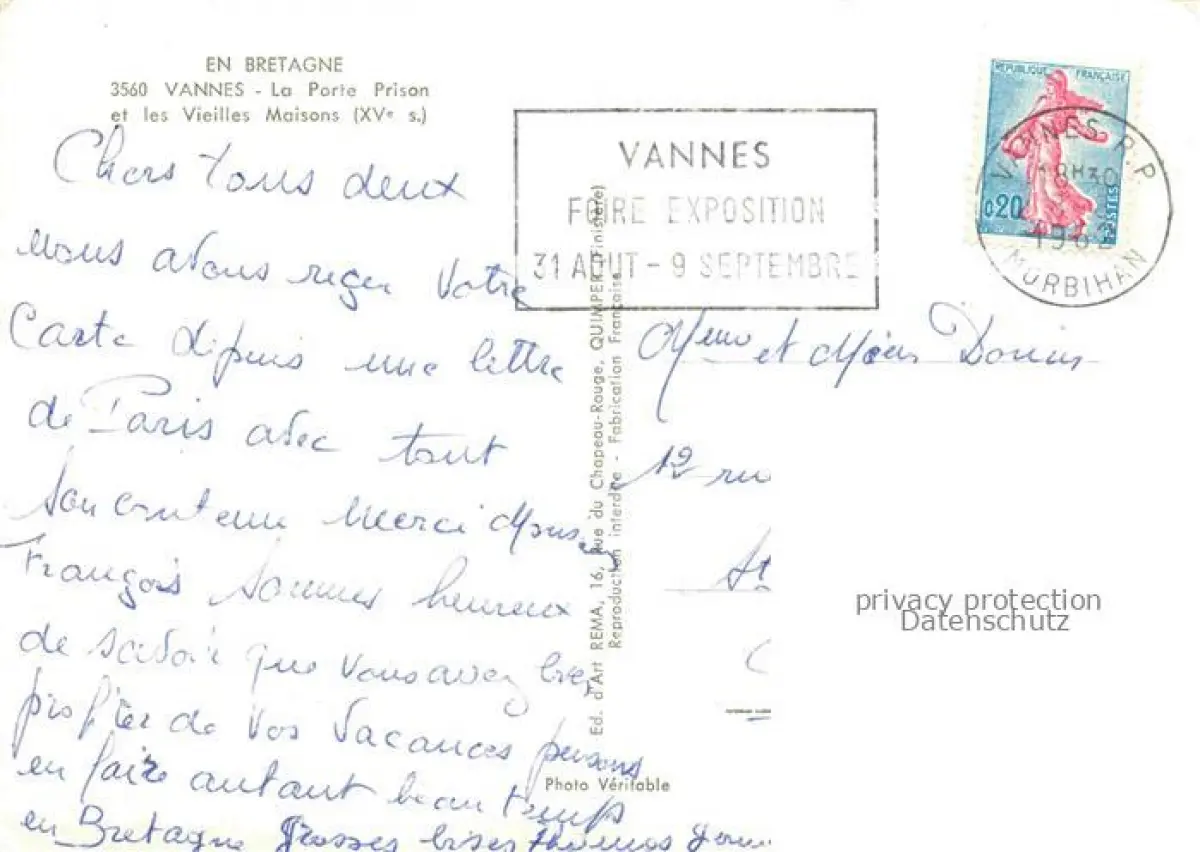 EN BRETAGNE
3560 VANNES - La Porte Prison
et les Vieilles Maisons (XVe s.)
Chers tous deux
nous avons reçu votre
Carte depuis une lettre
de Paris avec tout
son contenu Merci
François sommes heureux
de savoir que vous avez bien
profiter de vos vacances pensons
en faire autant beau temps
en Bretagne grosses bises Thomas
VANNES
FOIRE EXPOSITION
31 AOUT - 9 SEPTEMBRE
REPUBLIQUE FRANÇAISE
0,20
POSTES
VANNES R.P.
18H30
MORBIHAN
et
12 rue
St
Ed. d'Art REMA, 16, Rue du Chapeau-Rouge, QUIMPER (Finistère)
Reproduction interdite - Fabrication Française
Photo Véritable
privacy protection
Datenschutz